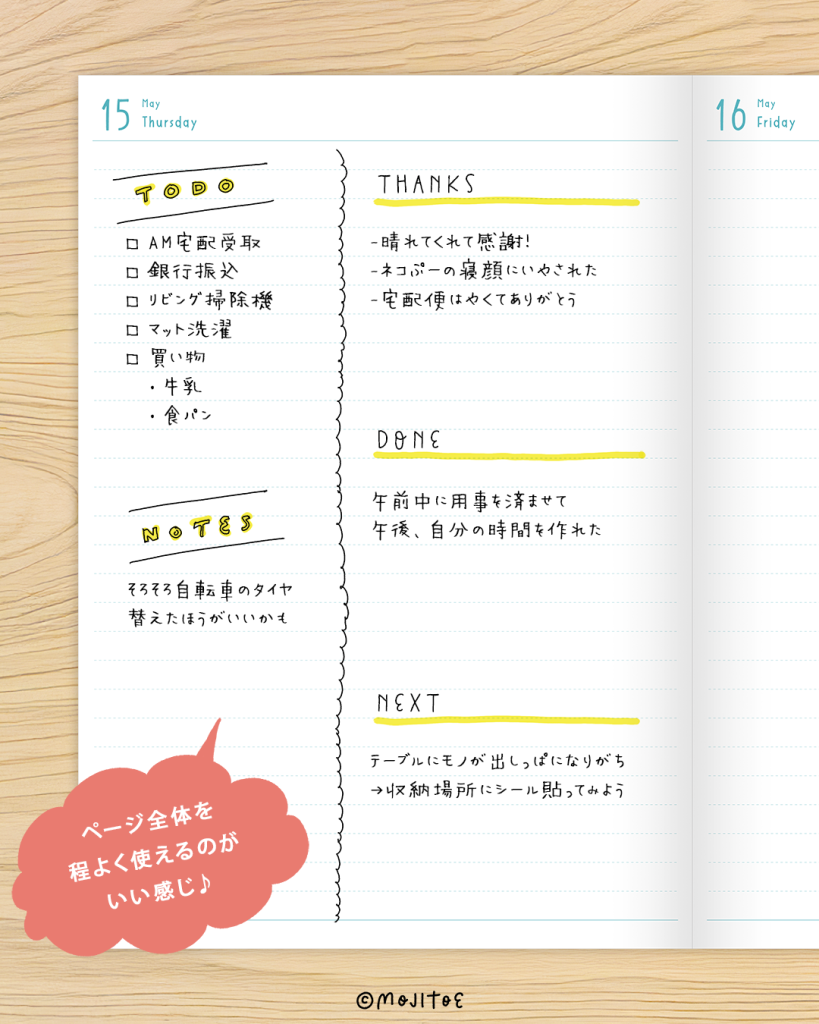 15 May
Thursday
TODO
□ AM宅配受取
□ 銀行振込
□ リビング掃除機
□ マット洗濯
□ 買い物
・牛乳
・食パン
NOTES
そろそろ自転車のタイヤ
替えたほうがいいかも
THANKS
-晴れてくれて感謝!
-ネコぷーの寝顔にいやされた
-宅配便はやくてありがとう
DONE
午前中に用事を済ませて
午後、自分の時間を作れた
NEXT
テーブルにモノが出しっぱになりがち
→収納場所にシール貼ってみよう
16 May
Friday
ページ全体を
程よく使えるのが
いい感じ♪
©MOJITOE